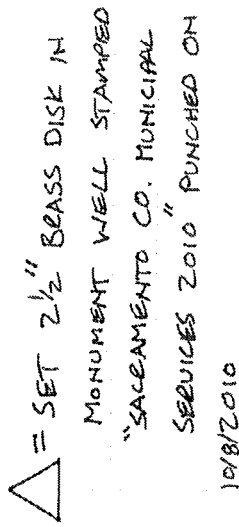 △ = SET 2½" BRASS DISK IN
MONUMENT WELL STAMPED
"SACRAMENTO CO. MUNICIPAL
SERVICES 2010" PUNCHED ON
10/8/2010